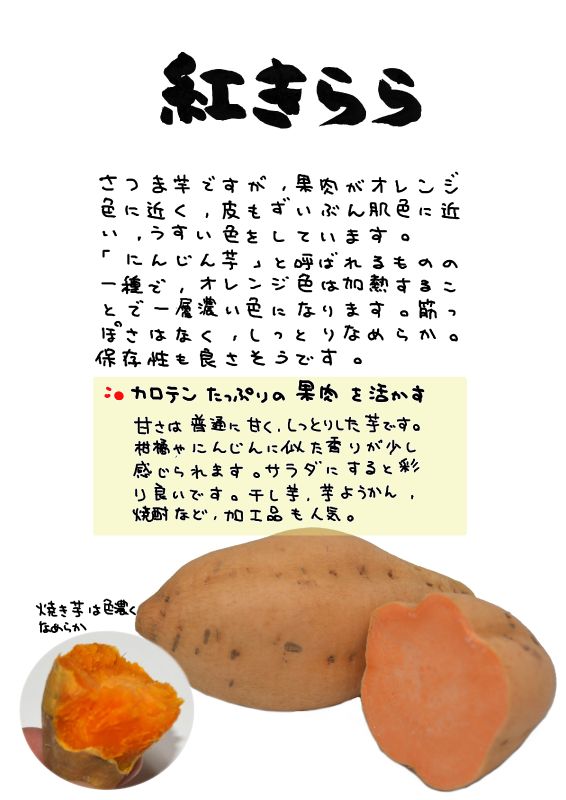 紅きらら
さつま芋ですが,果肉がオレンジ
色に近く,皮もずいぶん肌色に近
い,うすい色をしています。
「にんじん芋」と呼ばれるものの
一種で,オレンジ色は加熱するこ
とで一層濃い色になります。筋っ
ぽさはなく,しっとりなめらか。
保存性も良さそうです。
カロテンたっぷりの果肉を活かす
甘さは普通に甘く,しっとりした芋です。
柑橘やにんじんに似た香りが少し
感じられます。サラダにすると彩
り良いです。干し芋,芋ようかん,
焼酎など,加工品も人気。
焼き芋は色濃く
なめらか